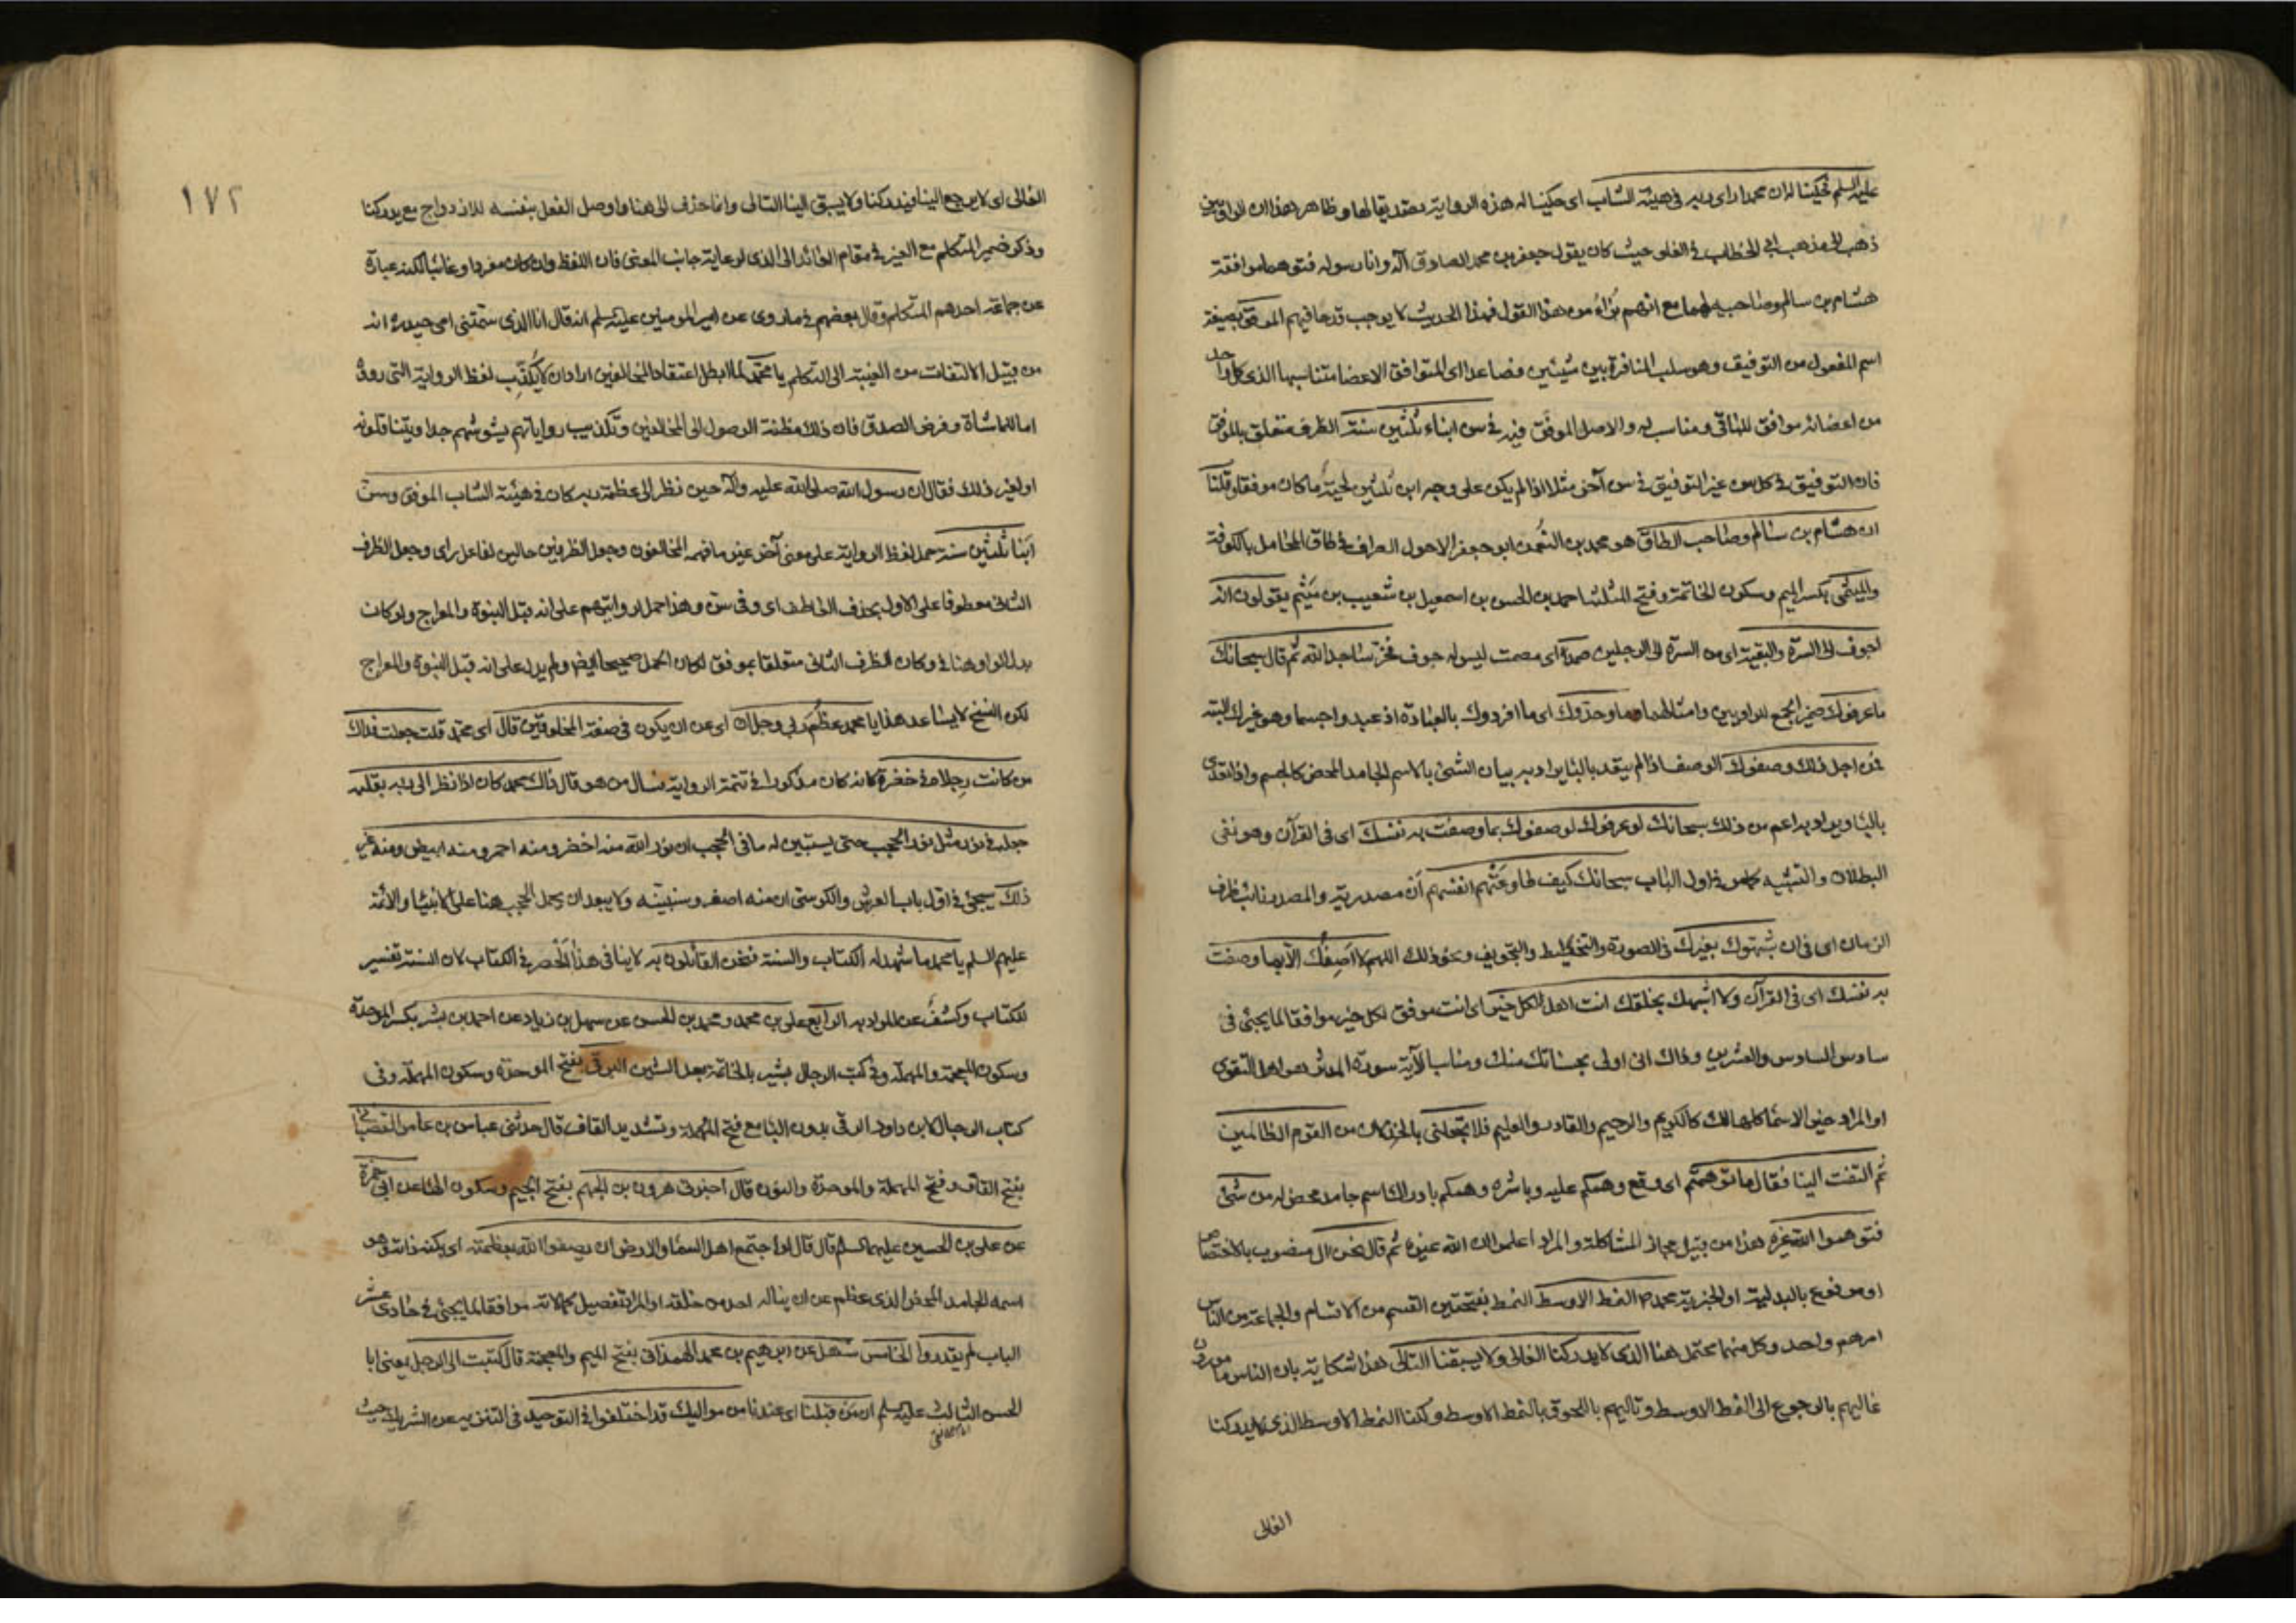 عليه السلم فحكينا له ان محمدا راى ربه فى هيئة الشاب اى حكينا له هذه الرواية معتقديها لها وظاهر هذا ان الراويين
ذهب الى مذهب ابى الخطاب فى الغلو حيث كان يقول جعفر بن محمد الصادق اله وانا رسوله فتوهما موافقة
هشام بن سالم وصاحبيه لهما مع انهم براء من هذا القول فهذا الحديث لا يوجب قدحا فيهم الموفق بصيغة
اسم المفعول من التوفيق وهو سلب المنافرة بين شيئين فصاعدا اى المتوافق الاعضا متناسبها الذى كل واحد
من اعضائه موافق للباقى ومناسب له والاصل الموفق فيه فى سن ابناء ثلثين سنة الظرف متعلق بالموفق
فان التوفيق فى كل سن غير التوفيق فى سن آخر مثلا اذا لم يكن على وجه ابن ثلثين لحية ما كان موفقا وقلنا
ان هشام بن سالم وصاحب الطاق هو محمد بن النعمن ابو جعفر الاحول الصراف فى طاق المحامل بالكوفة
والميثمى بكسر الميم وسكون الخاتمة وفتح المثلثة احمد بن الحسن بن اسمعيل بن شعيب بن ميثم يقولون انه
اجوف الى السرة والبقية اى من السرة الى الرجلين صمد اى مصمت ليس له جوف فخر ساجدا لله ثم قال سبحانك
ما عرفوك ضمير الجمع للراويين وامثالهما وما وحدوك اى ما افردوك بالعبادة اذ عبدوا جسما وهو غيرك البتة
فمن اجل ذلك وصفوك الوصف اذا لم يتعد بالبا يراد به بيان الشئ بالاسم الجامد المحض كالجسم واذا تعدى
بالبا ويراد به اعم من ذلك سبحانك لو عرفوك لوصفوك بما وصفت به نفسك اى فى القرآن وهو نفى
البطلان والتشبيه كما مر فى اول الباب سبحانك كيف طاوعتهم انفسهم أن مصدرية والمصدر نائب ظرف
الزمان اى فى ان شبهوك بغيرك فى الصورة والتخطيط والتجويف ونحو ذلك اللهم لا اصفك الا بما وصفت
به نفسك اى فى القرآن ولا اشبهك بخلقك انت اهل لكل خير اى انت موفق لكل خير موافقا لما يجئ فى
سادس السادس والعشرين وذاك انى اولى بحسناتك منك ومناسبا لآية سورة المدثر هو اهل التقوى
او المراد خير الاسما كلها لك كالكريم والرحيم والقادر والعليم فلا تجعلنى بالخذلان من القوم الظالمين
ثم التفت الينا فقال ما توهمتم اى وقع وهمكم عليه وباشره وهمكم بادراك اسم جامد محض له من شئ
فتوهموا الله غيره هذا من قبيل مجاز المشاكلة والمراد اعلموا ان الله غيره ثم قال نحن ال منصوب بالاختصاص
او مرفوع بالبدلية او الخبرية محمد ص النمط الاوسط النمط بفتحتين القسم من الاقسام والجماعة من الناس
امرهم واحد وكل منهما محتمل هنا الذى لا يدركنا الغالى ولا يسبقنا التالى هذا شكاية بان الناس مامورون
غاليهم بالرجوع الى النمط الاوسط وتاليهم باللحوق بالنمط الاوسط ولكنا النمط الاوسط الذى لا يدركنا
الغالى
١٧٢
الغالى اى لا يرجع الينا فيدركنا ولا يسبق الينا التالى وانما حذف الى هنا واوصل الفعل بنفسه للازدواج مع يدركنا
وذكر ضمير المتكلم مع الغير فى مقام العائد الى الذى لرعاية جانب المعنى فان اللفظ وان كان مفردا وغائبا لكنه عبارة
عن جماعة احدهم المتكلم وقال بعضهم فيما روى عن امير المومنين عليه السلم انه قال انا الذى سمتنى امى حيدره انه
من قبيل الالتفات من الغيبة الى التكلم يا محمد لما ابطل اعتقاد المخالفين اراد ان لا يكذب لفظ الرواية التى رووه
اما للماشاة وفرض الصدق فان ذلك مظنة الوصول الى المخالفين وتكذيب رواياتهم يشوشهم جدا ويتناقلونه
او لغير ذلك فقال ان رسول الله صلى الله عليه وآله حين نظر الى عظمة ربه كان فى هيئة الشاب الموفق وسن
ابنا ثلثين سنة حمل لفظ الرواية على معنى آخر غير ما فهمه المخالفون وجعل الظرفين حالين لفاعل راى وجعل الظرف
الثانى معطوفا على الاول بحذف الخافض اى وفى سن وهذا حمل لروايتهم على انه قبل النبوة والمعراج ولو كان
بدل الواو هنا فى وكان الظرف الثانى متعلقا بموفق لكان الحمل صحيحا ايضا ولم يدل على انه قبل النبوة والمعراج
لكن النسخ لا يساعد هذا يا محمد عظم ربى وجل ان اى عن ان يكون فى صفة المخلوقين قال اى محمد قلت جعلت فداك
من كانت رجلاه فى خضرة كانه كان مذكورا فى تتمة الرواية فسال من هو قال ذاك محمد كان اذا نظر الى ربه بقلبه
جعله فى نور مثل نور الحجب حتى يستبين له ما فى الحجب ان نور الله منه اخضر ومنه احمر ومنه ابيض ومنه غير
ذلك سيجئ فى اول باب العرش والكرسى ان منه اصفر وسنبينه ولا يبعد ان يحمل الحجب هنا على الانبيا والائمة
عليهم السلم يا محمد ما شهد له الكتاب والسنة فنحن القائلون به لا ينافى هذا الحصر فى الكتاب لان السنة تفسير
للكتاب وكشف عن المراد به الرابع على بن محمد ومحمد بن الحسن عن سهل بن زياد عن احمد بن بشر بكسر الموحدة
وسكون المعجمة والمهملة وفى كتب الرجال بشير بالخاتمة بعد الشين البرقى بفتح الموحدة وسكون المهملة وفى
كتاب الرجال لابن داود الرقى بدون البا مع فتح المهملة وتشديد القاف قال حدثنى عباس بن عامر القصبانى
بفتح القاف وفتح المهملة والموحدة والنون قال اخبرنى هرون بن الجهم بفتح الجيم وسكون الها عن ابى حمزة
عن على بن الحسين عليهما السلم قال قال لو اجتمع اهل السما والارض ان يصفوا الله بعظمته اى بكنه ذاته هو
اسمه الجامد المحض الذى عظم عن ان يناله احد من خلقه او المراد تفصيل كمالاته موافقا لما يجئ فى حادى عشر
الباب لم يقدروا الخامس سهل عن ابرهيم بن محمد الهمذانى بفتح الميم والمعجمة قال كتبت الى الرجل يعنى ابا
الحسن الثالث عليه السلم ان من قبلنا اى عندنا من مواليك قد اختلفوا فى التوحيد فى التنزيه عن الشريك حيث